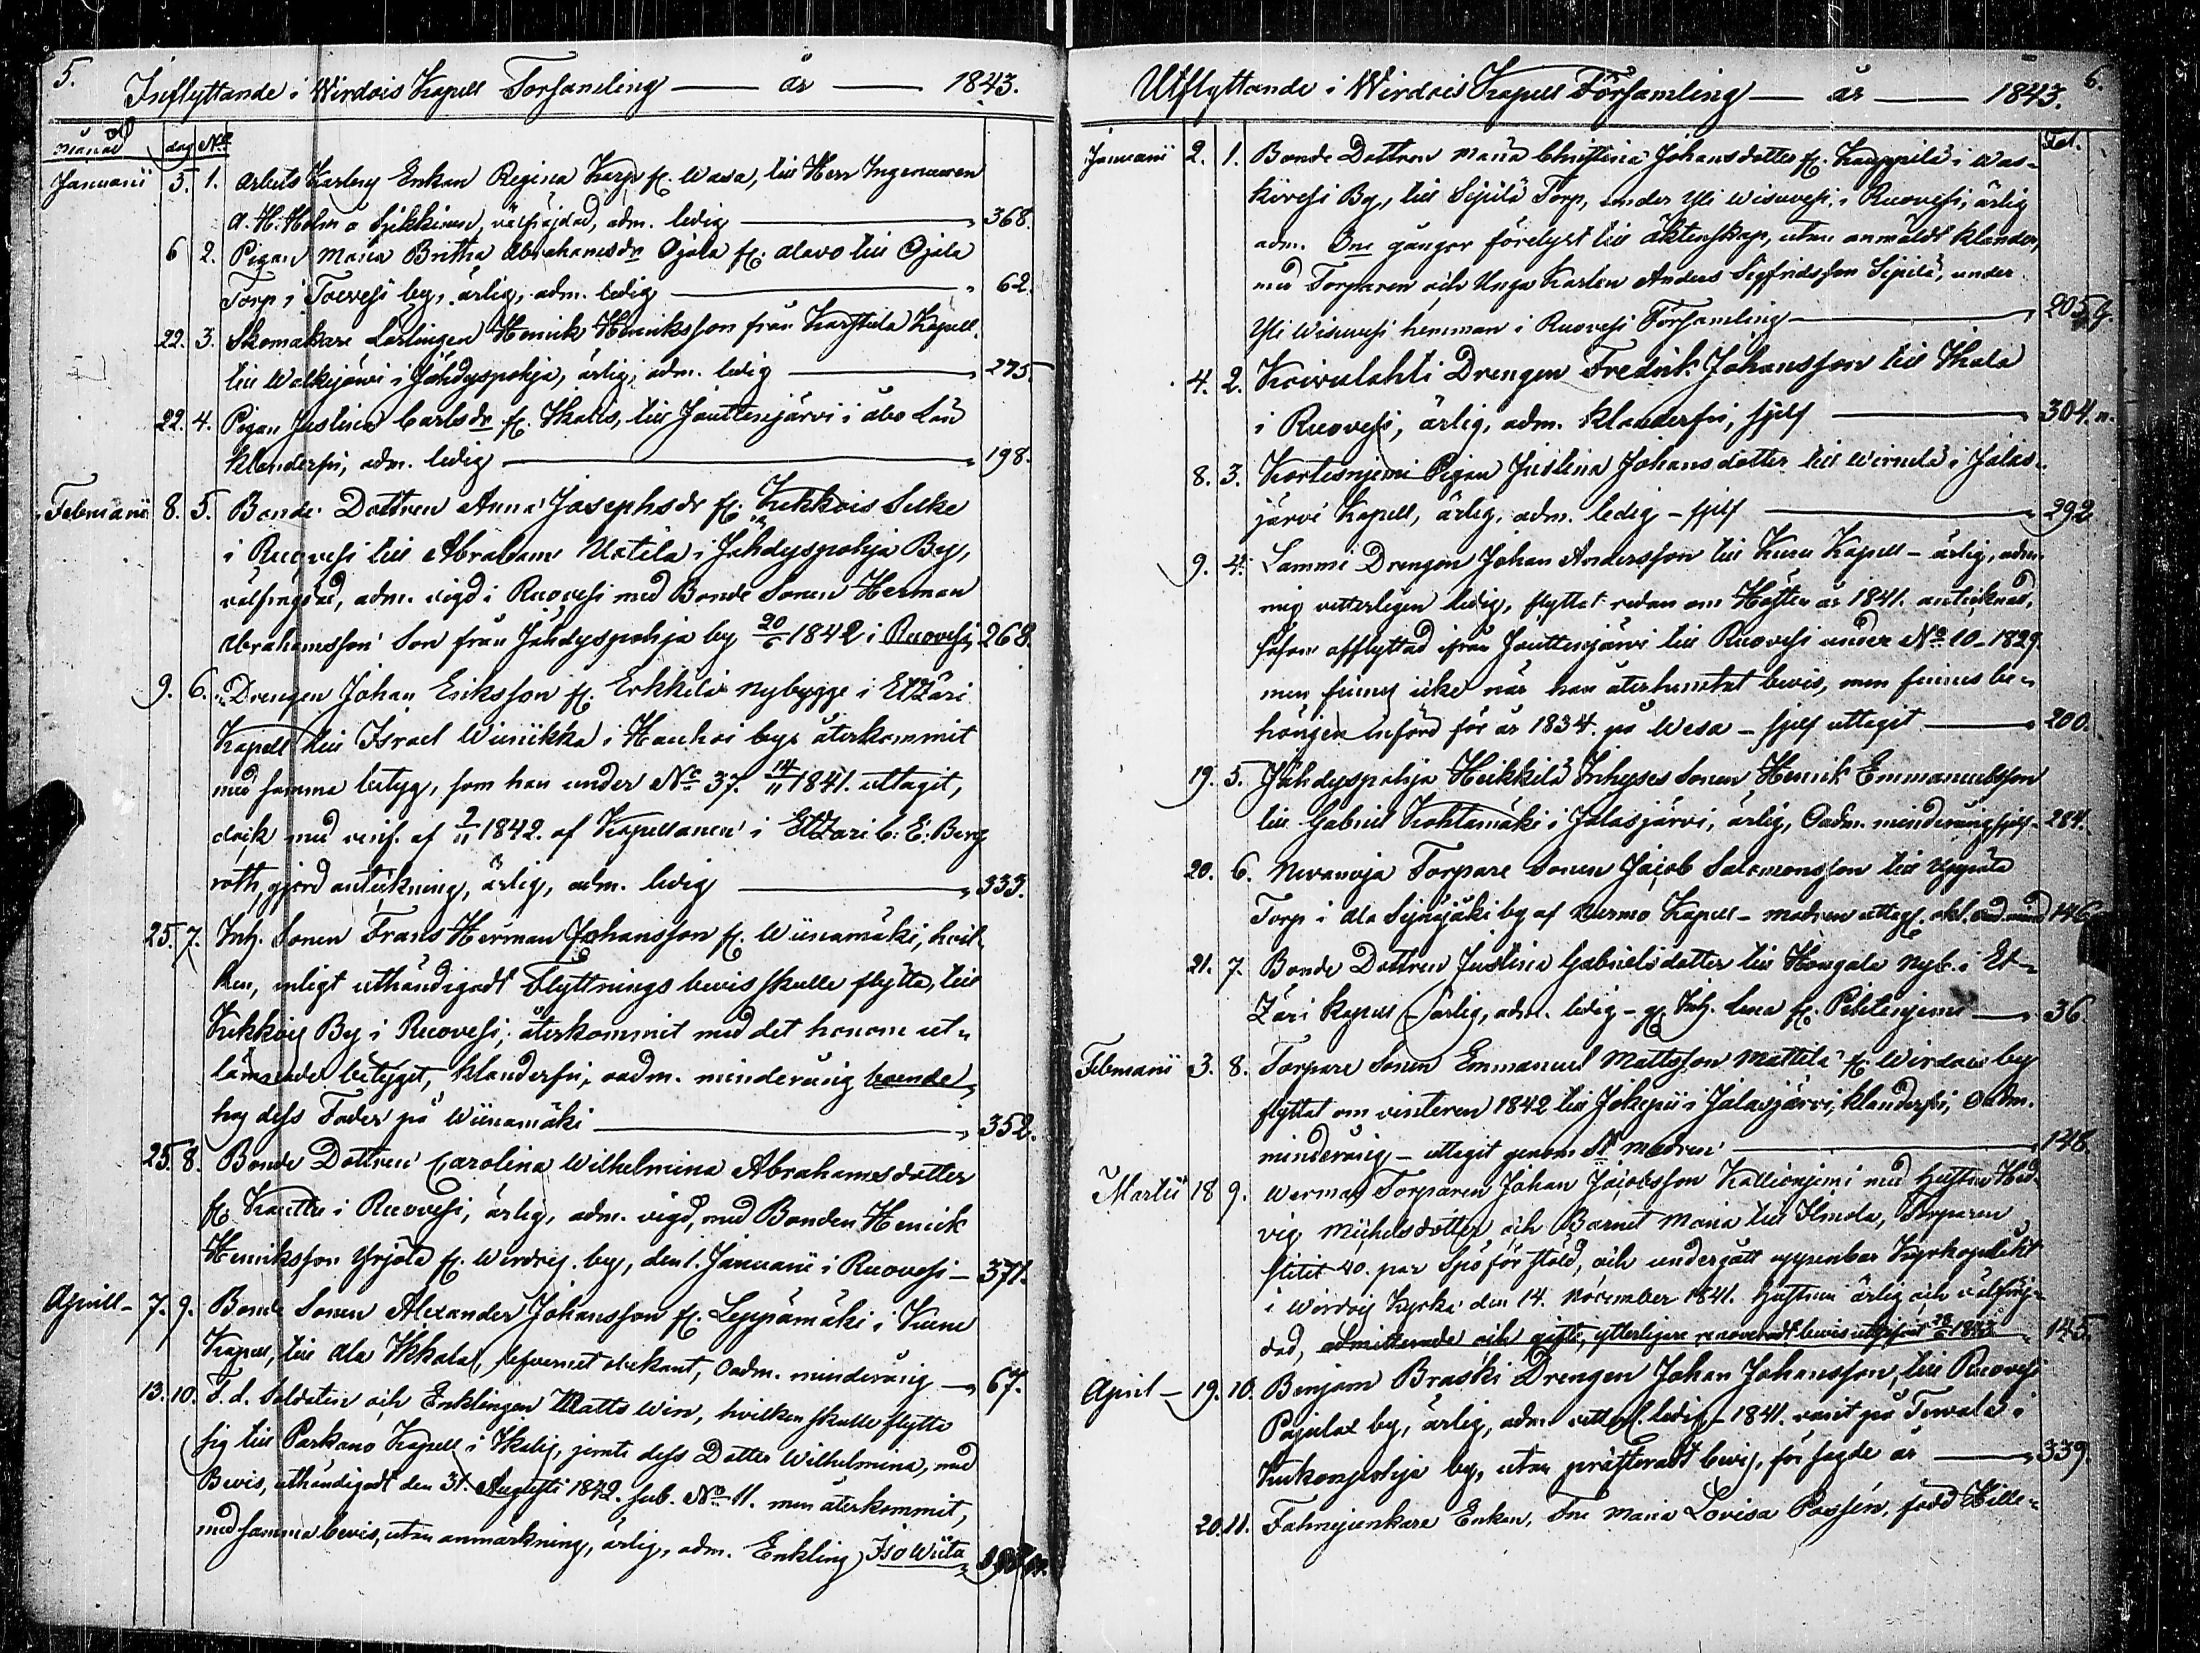 5.
Inflyttande i Wirdois Kapell Församling — år — 1843.
Månad dag No
Januarii 5. 1. Arbets Karlens Enkan Regina Karp fr. Wasa, till Herr Ingenieuren
A. H. Holm a Sjikkinen, välfräjdad, adm. ledig — 368.
6 2. Pigan Maria Britha Abrahamsdr Ojala fr. Alavo till Ojala
Torp i Toivesi by, ärlig, adm. ledig — 62.
22. 3. Skomakare Lärlingen Henrik Henriksson från Karstula Kapell
till Walkejärvi i Jähdyspohja, ärlig, adm. ledig — 275
22. 4. Pigan Justina Carlsdr fr. Ikalis, till Jouttenjärvi i Åbo Län
klanderfri, adm. ledig — 198.
Februarii 8. 5. Bonde Dottren Anna Josephsdr fr. Kekkois Silke
i Ruovesi till Abraham Uotila i Jähdyspohja By,
välfrägdad, adm. vigd i Ruovesi med Bonde Sonen Herman
Abrahamsson Son från Jähdyspohja by 20/6 1842 i Ruovesi, 268.
9. 6. Drengen Johan Eriksson fr. Erkkilä nybygge i Etzäri
Kapell till Israel Wiinikka i Hauhoi by, återkommit
med samma betyg, som han under No 37. 14/11 1841. uttagit,
dock med vinf. af 7/11 1842. af Kapellanen i Etzäri C. E. Berg
roth, gjord anteckning, ärlig, adm. ledig — 333.
25. 7. Inh. Sonen Frans Herman Johansson fr. Wiinamäki, hvil
ken, enligt uthändigadt Flyttnings bevis skulle flytta, till
Kekkois By i Ruovesi, återkommit med det honom ut-
lämnade betyget, klanderfri, oadm. minderårig boende
hos dess Fader på Wiinamäki — 352.
25. 8. Bonde Dottren Carolina Wilhelmina Abrahamsdotter
fr. Kauttu i Ruovesi, ärlig, adm. vigd, med Bonden Henrik
Henriksson Yrjölä fr. Werdois by, den 1. Januarii i Ruovesi — 371.
Aprill — 7. 9. Bonde Sonen Alexander Johansson fr. Leppämäki i Kuru
Kapell, till Ala Ikkala, lefvernet obekant, Oadm. minderårig — 67.
13. 10. F. d. Soldaten och Enklingen Matts Win, hvilken skulle flytta
sig till Parkano Kapell i Ikalis, jemte dess Dotter Wilhelmina, med
Bevis, uthändigadt den 31. Augusti 1842. sub. No 11. men återkommit,
med samma bevis, utan anmärkning, ärlig, adm. Enkling Iso Wiita
6.
Utflyttande i Wirdois Kapell Församling — år — 1843.
Fol.
Januarii 2. 1. Bonde Dottren Maria Christina Johansdotter fr. Kauppila i Was-
kivesi By, till Sipilä Torp, under Yli Wisuvesi, i Ruovesi, ärlig
adm. Tre gånger förelyst till äktenskap, utan anmäldt klander,
med Torparen och Unga Karlen Anders Sigfridsson Sipilä, under
Yli Wisuvesi hemman i Ruovesi Församling — 205 g.
4. 2. Koivulahti Drengen Fredrik Johansson till Ikala
i Ruovesi, ärlig, adm. klanderfri, sjelf — 304. n.
8. 3. Kortesnjemi Pigan Justina Johansdotter till Wirnelä i Jalas-
järvi Kapell, ärlig, adm. ledig - sjelf — 292
9. 4. Lammi Drengen Johan Andersson till Kuru Kapell - ärlig, adm.
mig vetterligen ledig, flyttat redan om Hösten år 1841. antecknad,
såsom afflyttad ifrån Jouttenjärvi till Ruovesi under No 10 - 1829
men finnes icke när han återhemtat bevis, men finnes be-
hörigen införd för år 1834. på Wesa - sjelf uttagit — 200.
19. 5. Jähdyspohja Heikkilä Inhyses Sonen Henrik Emmanuelsson
till Gabriel Kohtamäki i Jalasjärvi, ärlig, Oadm. minderårig, sjelf - 284.
20. 6. Nevanoja Torpare Sonen Jacob Salomonsson till Uppula
Torp i Ala Seinäjäki by af Nurmo Kapell - modren uttag. 146
21. 7. Bonde Dottren Justina Gabrielsdotter till Hougala Nyb. i Et-
Zäri Kapell - ärlig, adm. ledig - gn. Inh. Lena fr. Pihtenjemi — 36.
Februarii 3. 8. Torpare Sonen Emmanuel Mattsson Mattila fr. Wirdois by
flyttat om vinteren 1842 till Jokipii i Jalasjärvi, klanderfri, Oadm.
minderårig - uttagit genom Modren — 148.
Martii 18 9. Wermas Torparen Johan Jacobsson Kallionjemi med hustrun Hed-
vig Michelsdotter, och Barnet Maria till Ilmola, Torparen
slitit 40. par Spö för stöld, och undergått uppenbar Kyrkoplikt
i Wirdois Kyrka den 14. November 1841. Hustrun ärlig och välfräj-
dad, admitterade och gifte, ytterligare renoveradt bevis utgifvit 1843 — 145.
April — 19. 10. Benjam Braski Drengen Johan Johansson, till Ruovesi
Pajulax by, ärlig, adm. vetterl. ledig - 1841. varit på Tervala i
Kurkonpohja by, utan präsleradt bevis, för sagde år — 339.
20. 11. Fahnejunkare Enkan, Fru Maria Lovisa Possén, född Wille-